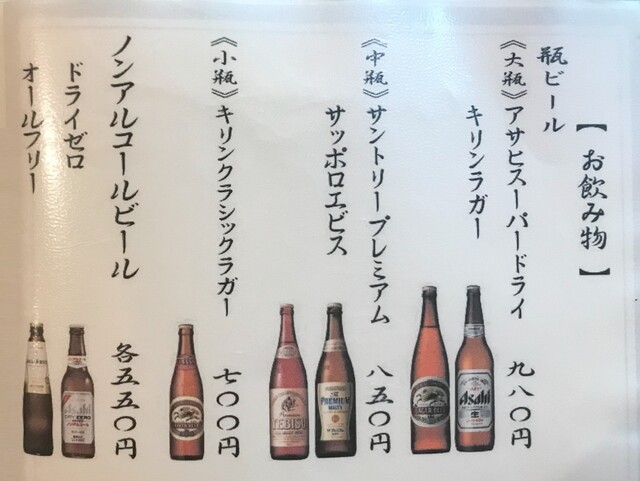 【お飲み物】
瓶ビール
《大瓶》アサヒスーパードライ 九八〇円
キリンラガー
《中瓶》サントリープレミアム 八五〇円
サッポロエビス
《小瓶》キリンクラシックラガー 七〇〇円
ノンアルコールビール 各五五〇円
ドライゼロ
オールフリー
Asahi
LAGER BEER
PREMIUM
MALT'S
YEBISU
Asahi
ZERO